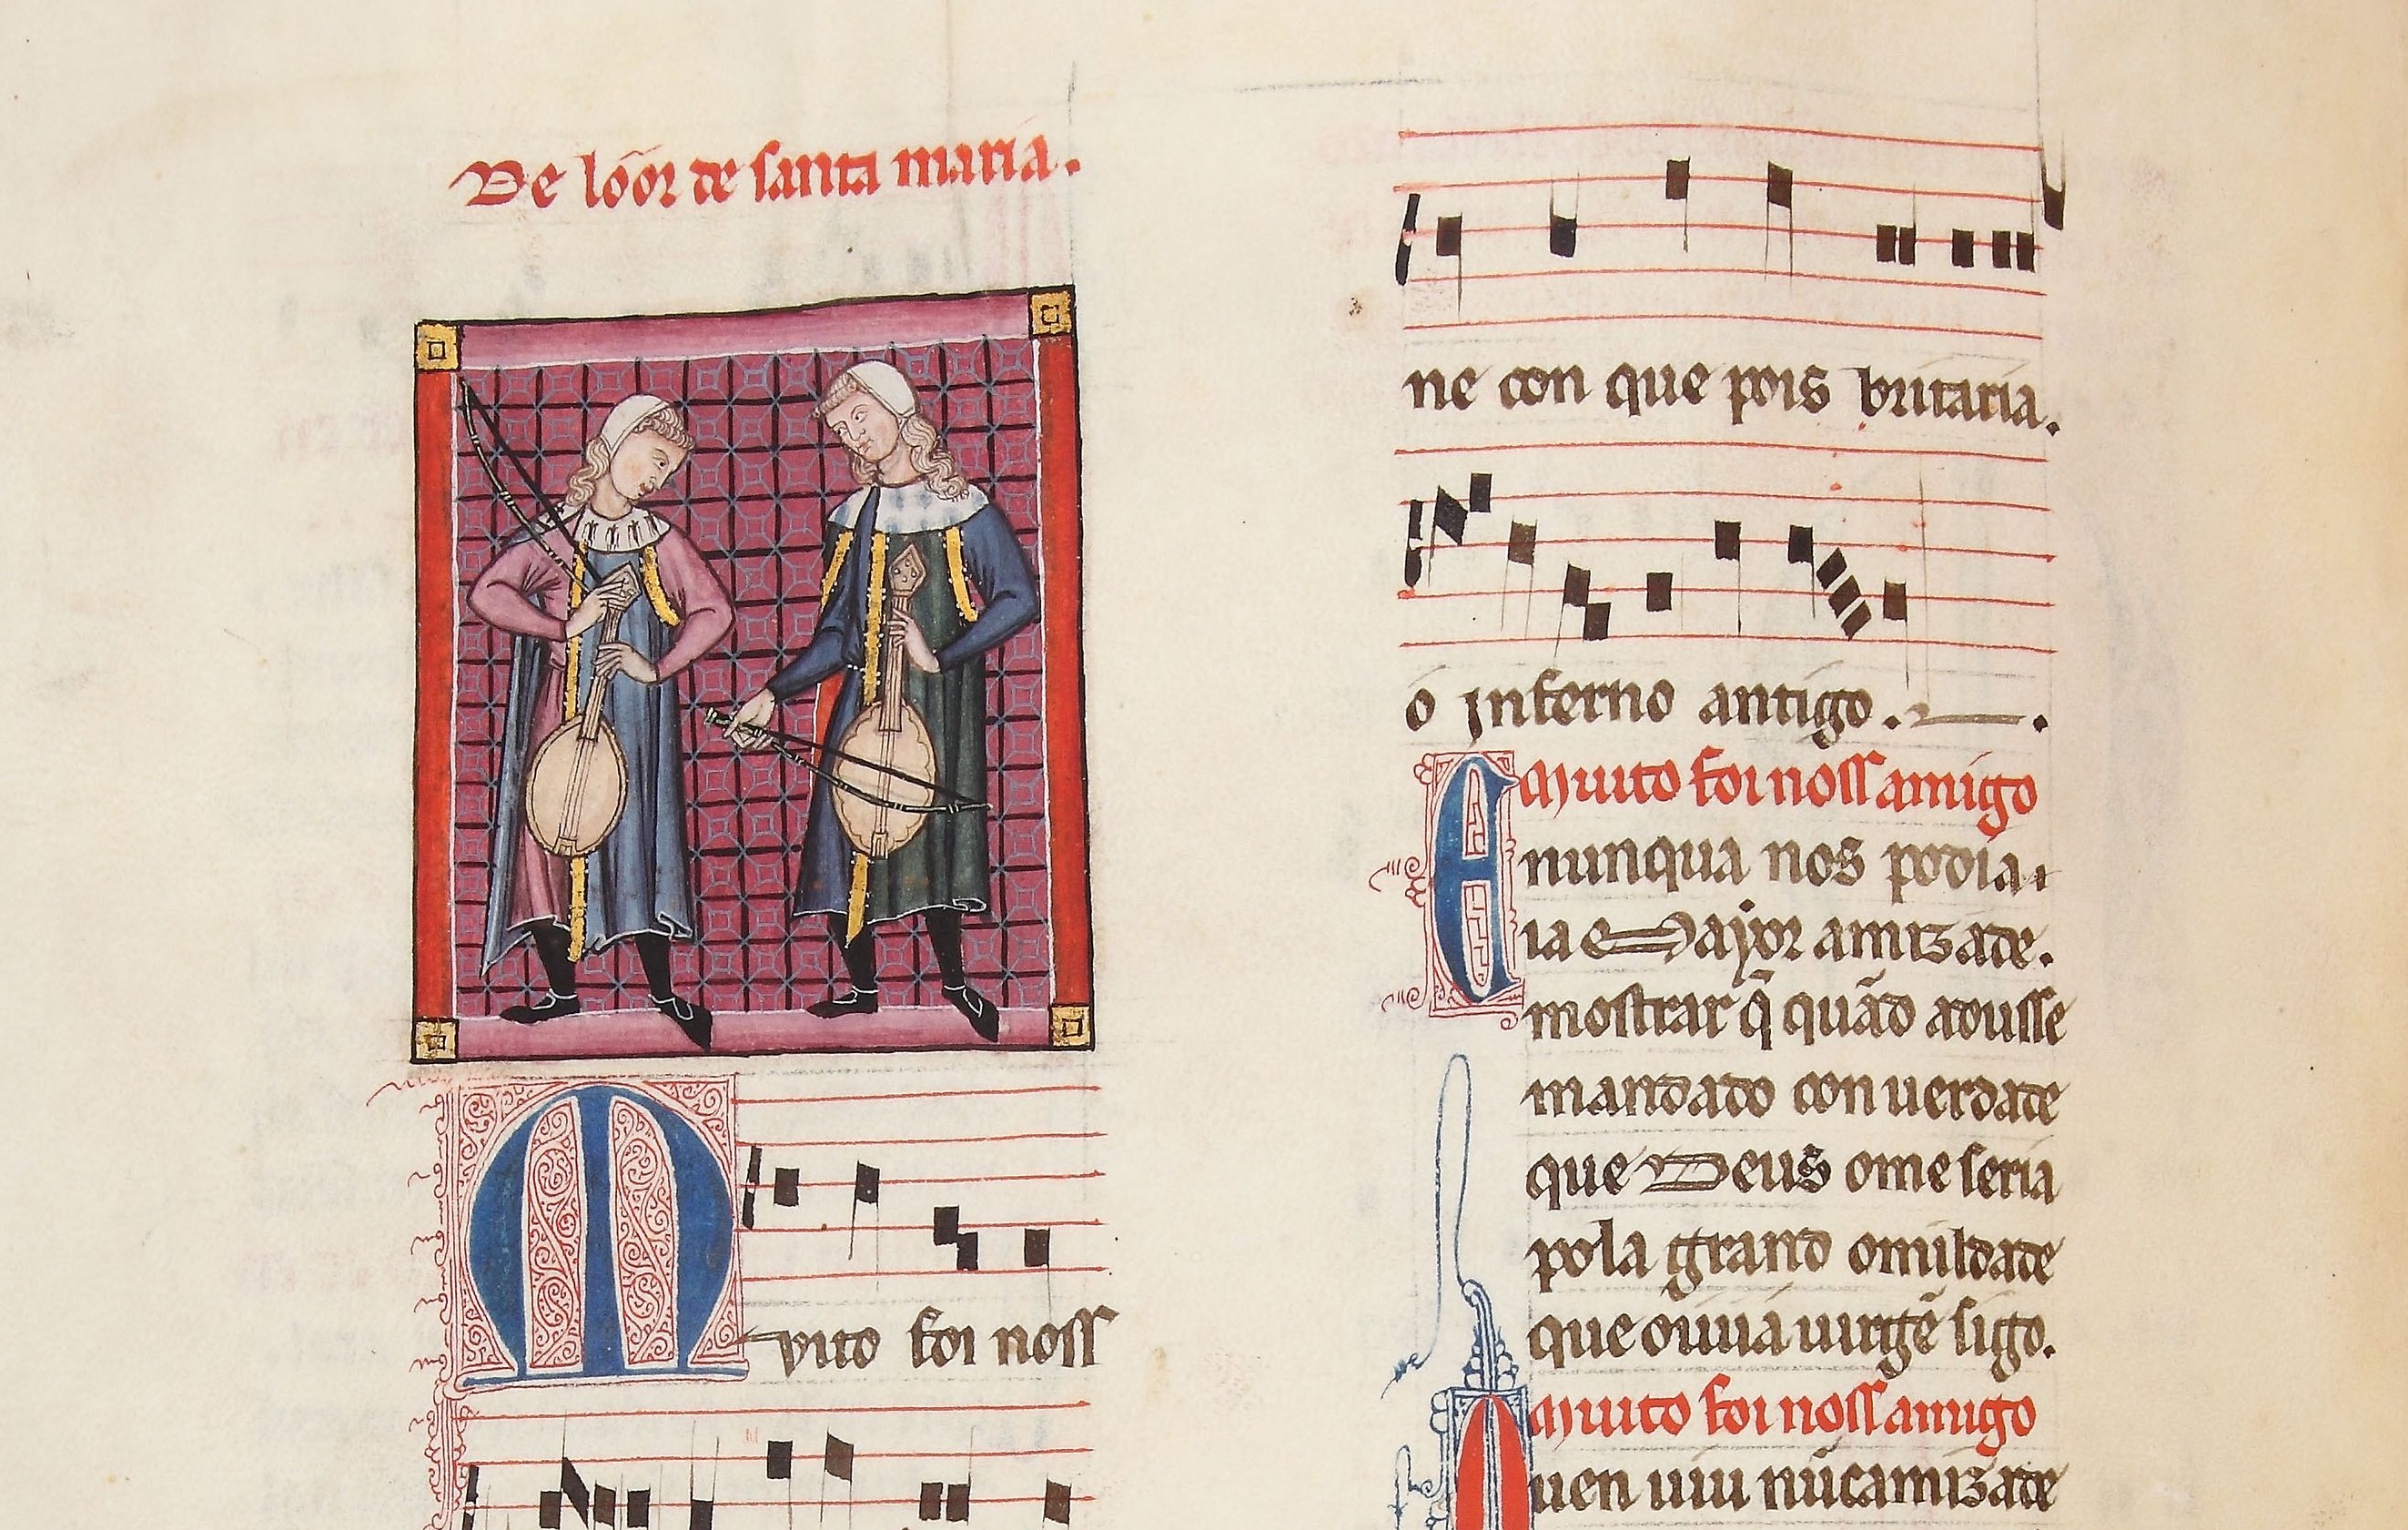 De lõor de santa maria.
Muito foi noss
ne con que pois britaria.
o jnferno antigo.
Muito foi noss amigo
E nunqua nos podia.
ia Mayor amizade.
mostrar q̃ quãdo adusse
mandado con uerdade
que Deus ome seria
pola grand omildade
que ouuu a uirgẽ sigo.
Muito foi noss amigo
Quen uiu nũca mizade